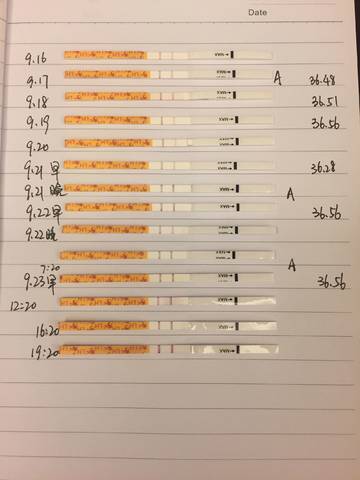 Date
9.16
9.17 A 36.48
9.18 36.51
9.19 36.56
9.20
9.21 早 36.28
9.21 晚 A
9.22 早 36.56
9.22 晚
A
7:20
9.23 早 36.56
12:20
16:20
19:20